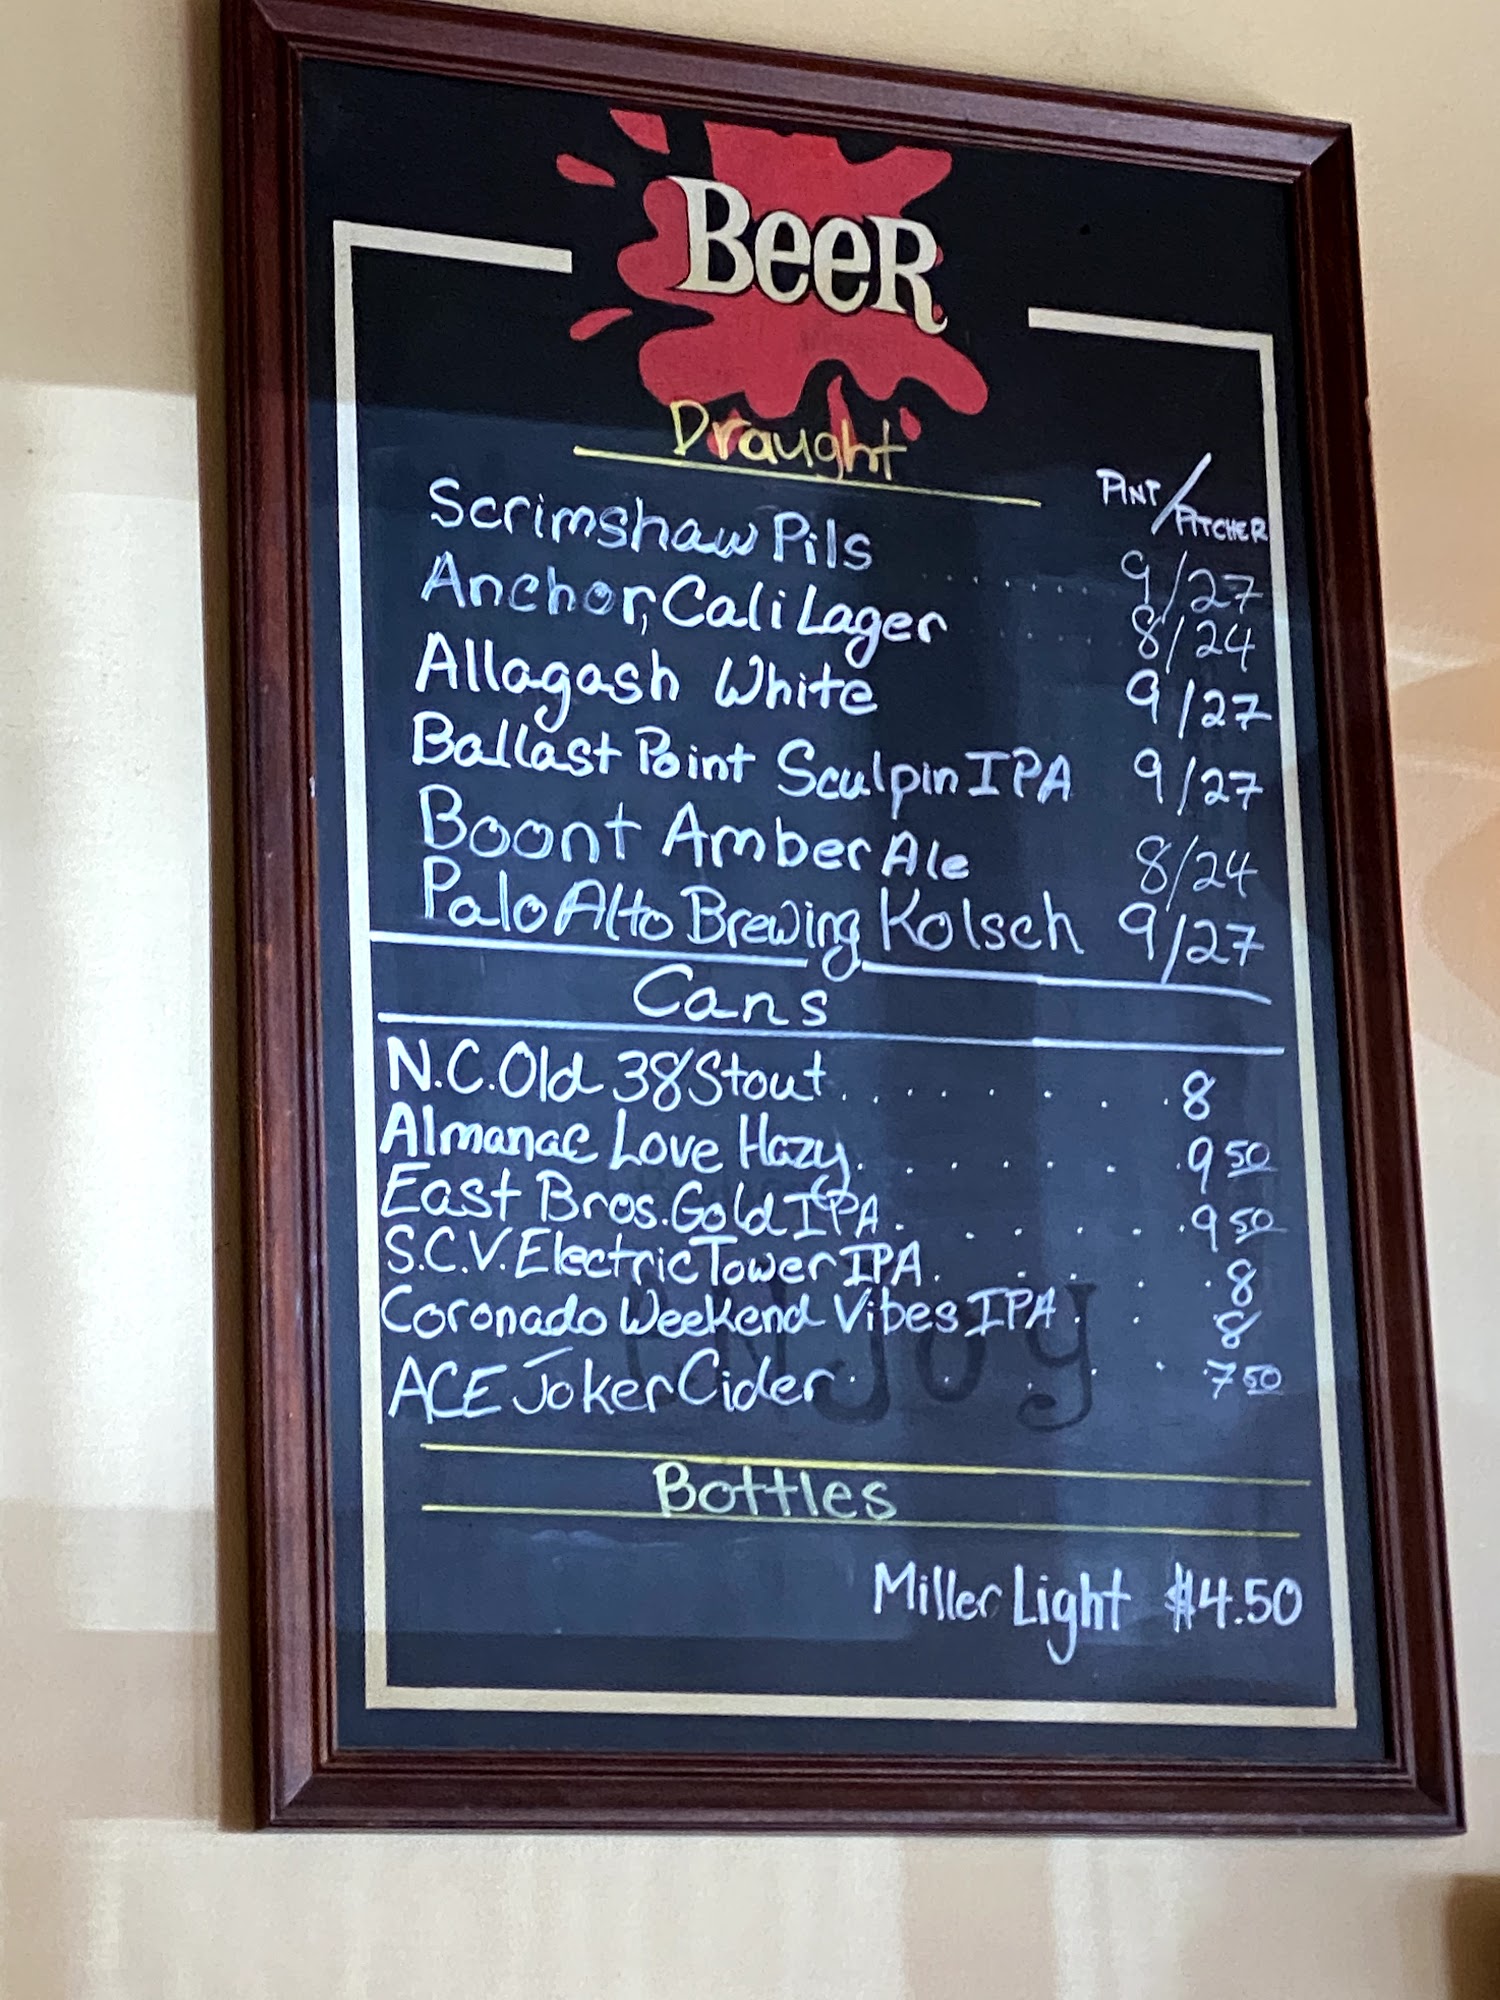 BeeR
Draught
PINT/PITCHER
Scrimshaw Pils ....... 9/27
Anchor, Cali Lager ..... 8/24
Allagash White 9/27
Ballast Point Sculpin IPA 9/27
Boont Amber Ale 8/24
Palo Alto Brewing Kolsch 9/27
Cans
N.C. Old 38 Stout........ 8
Almanac Love Hazy....... 9 50
East Bros. Gold IPA....... 9 50
S.C.V. Electric Tower IPA..... 8
Coronado Weekend Vibes IPA.. 8
ACE Joker Cider...... 7 50
eNJoy
Bottles
Miller Light $4.50